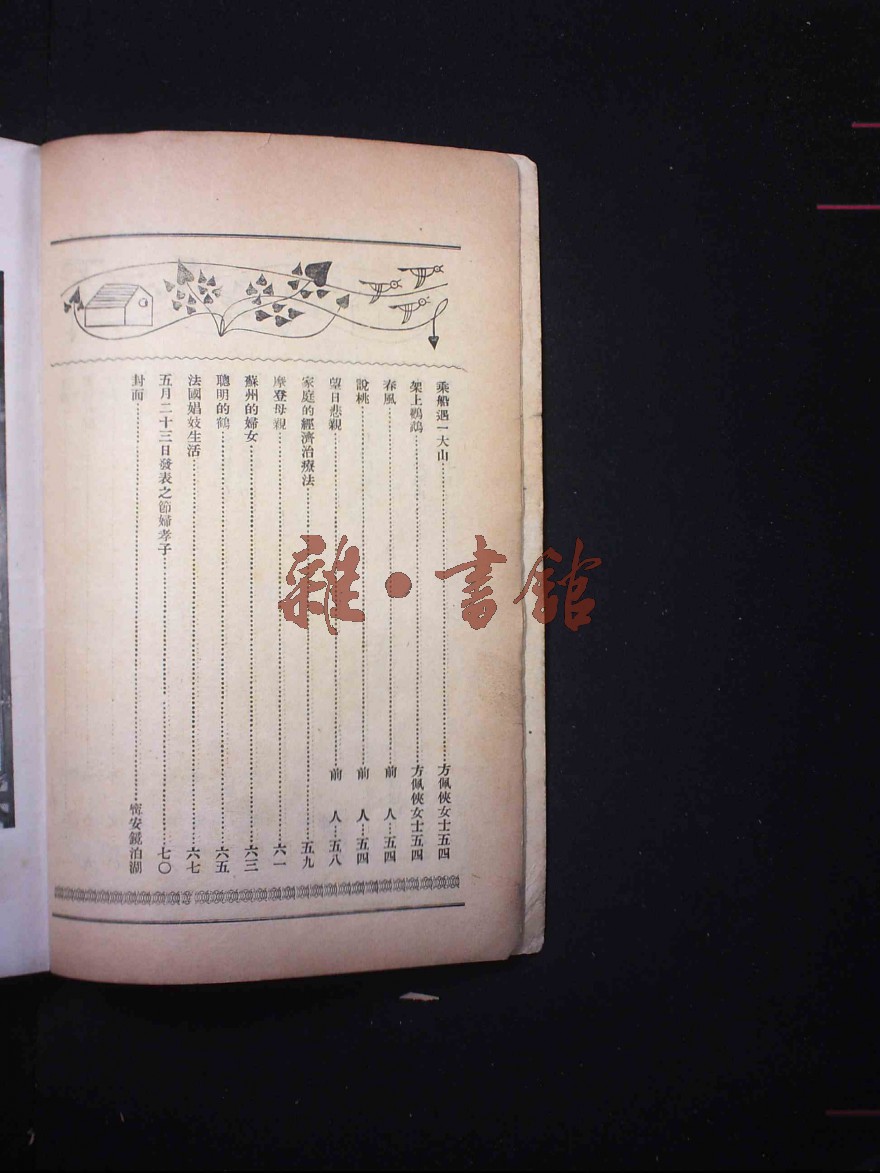 乘船遇一大山……方佩俠女士五四
架上鸚鵡……方佩俠女士五四
春風……前人…五四
說桃……前人…五四
望日悲親……前人…五八
家庭的經濟治療法……五九
摩登母親……六一
蘇州的婦女……六三
聰明的鶴……六五
法國娼妓生活……六七
五月二十三日發表之節婦孝子……七〇
封面……寗安鏡泊湖
雜·書館